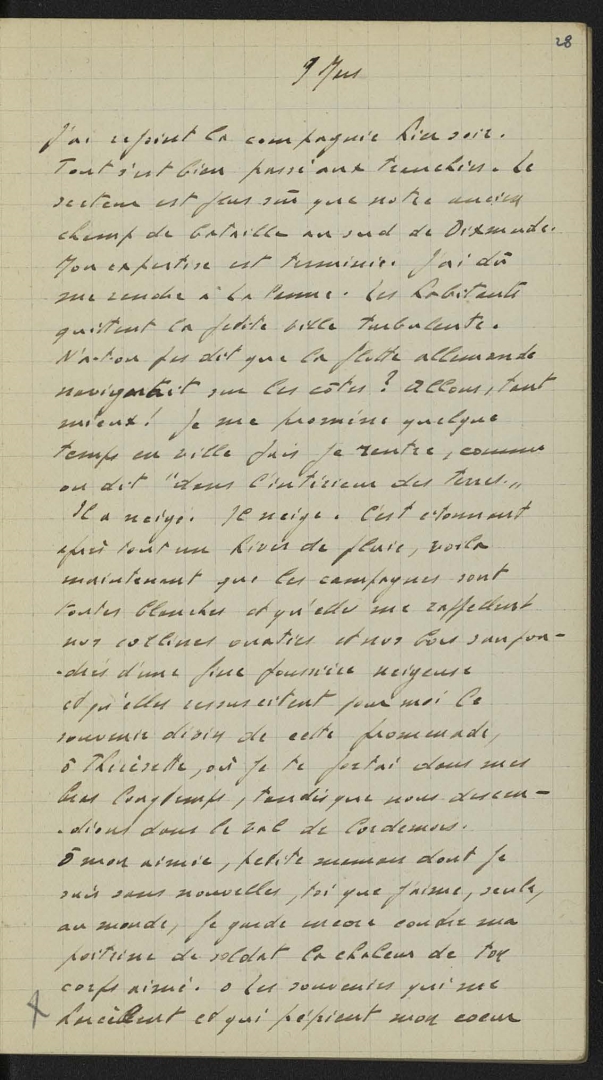 28
9 Mars
J'ai rejoint la compagnie hier soir.
Tout s'est bien passé aux tranchées. Le
secteur est plus sûr que notre ancien
champ de bataille au sud de Dixmude.
Mon expertise est terminée. J'ai dû
me rendre à La Panne. Les habitants
quittent la petite ville turbulente.
N'a-t-on pas dit que la flotte allemande
naviguait sur les côtes ? Allons, tant
mieux ! Je me promène quelque
temps en ville puis je rentre, comme
on dit "dans l'intérieur des terres.„
Il a neigé. Il neige. C'est étonnant
après tout un hiver de pluie, voilà
maintenant que les campagnes sont
toutes blanches et qu'elles me rappellent
nos collines ouatées et nos bois saupou-
-drés d'une fine poussière neigeuse
et qu'elles ressuscitent pour moi le
souvenir divin de cette promenade,
ô Thérésette, où je te portai dans mes
bras longtemps, tandis que nous descen-
-dions dans le val de Cordemois.
Ô mon aimée, petite maman dont je
suis sans nouvelles, toi que j'aime, seule,
au monde, je garde encore contre ma
poitrine de soldat la chaleur de ton
corps aimé. O les souvenirs qui me
harcèlent et qui mon coeur
X